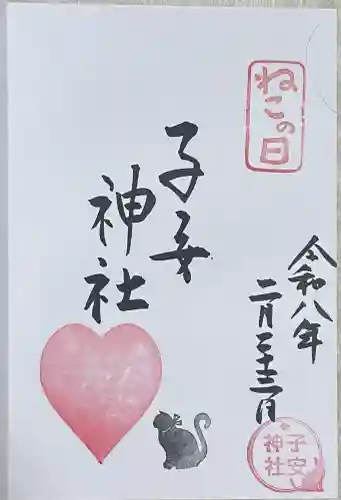 ねこの日
子安
神社
令和八年
二月二十二日
子安
神社